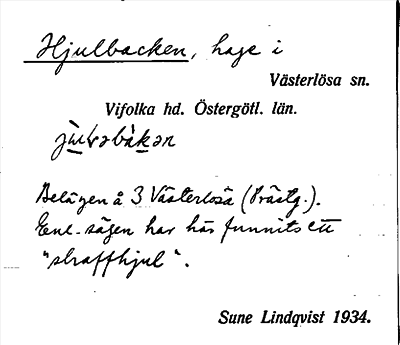 Hjulbacken, hage i
Västerlösa sn.
Vifolka hd. Östergötl. län.
Belägen å 3 Västerlösa (Prästg.).
Enl. sägen har här funnits ett
"straffhjul".
Sune Lindqvist 1934.